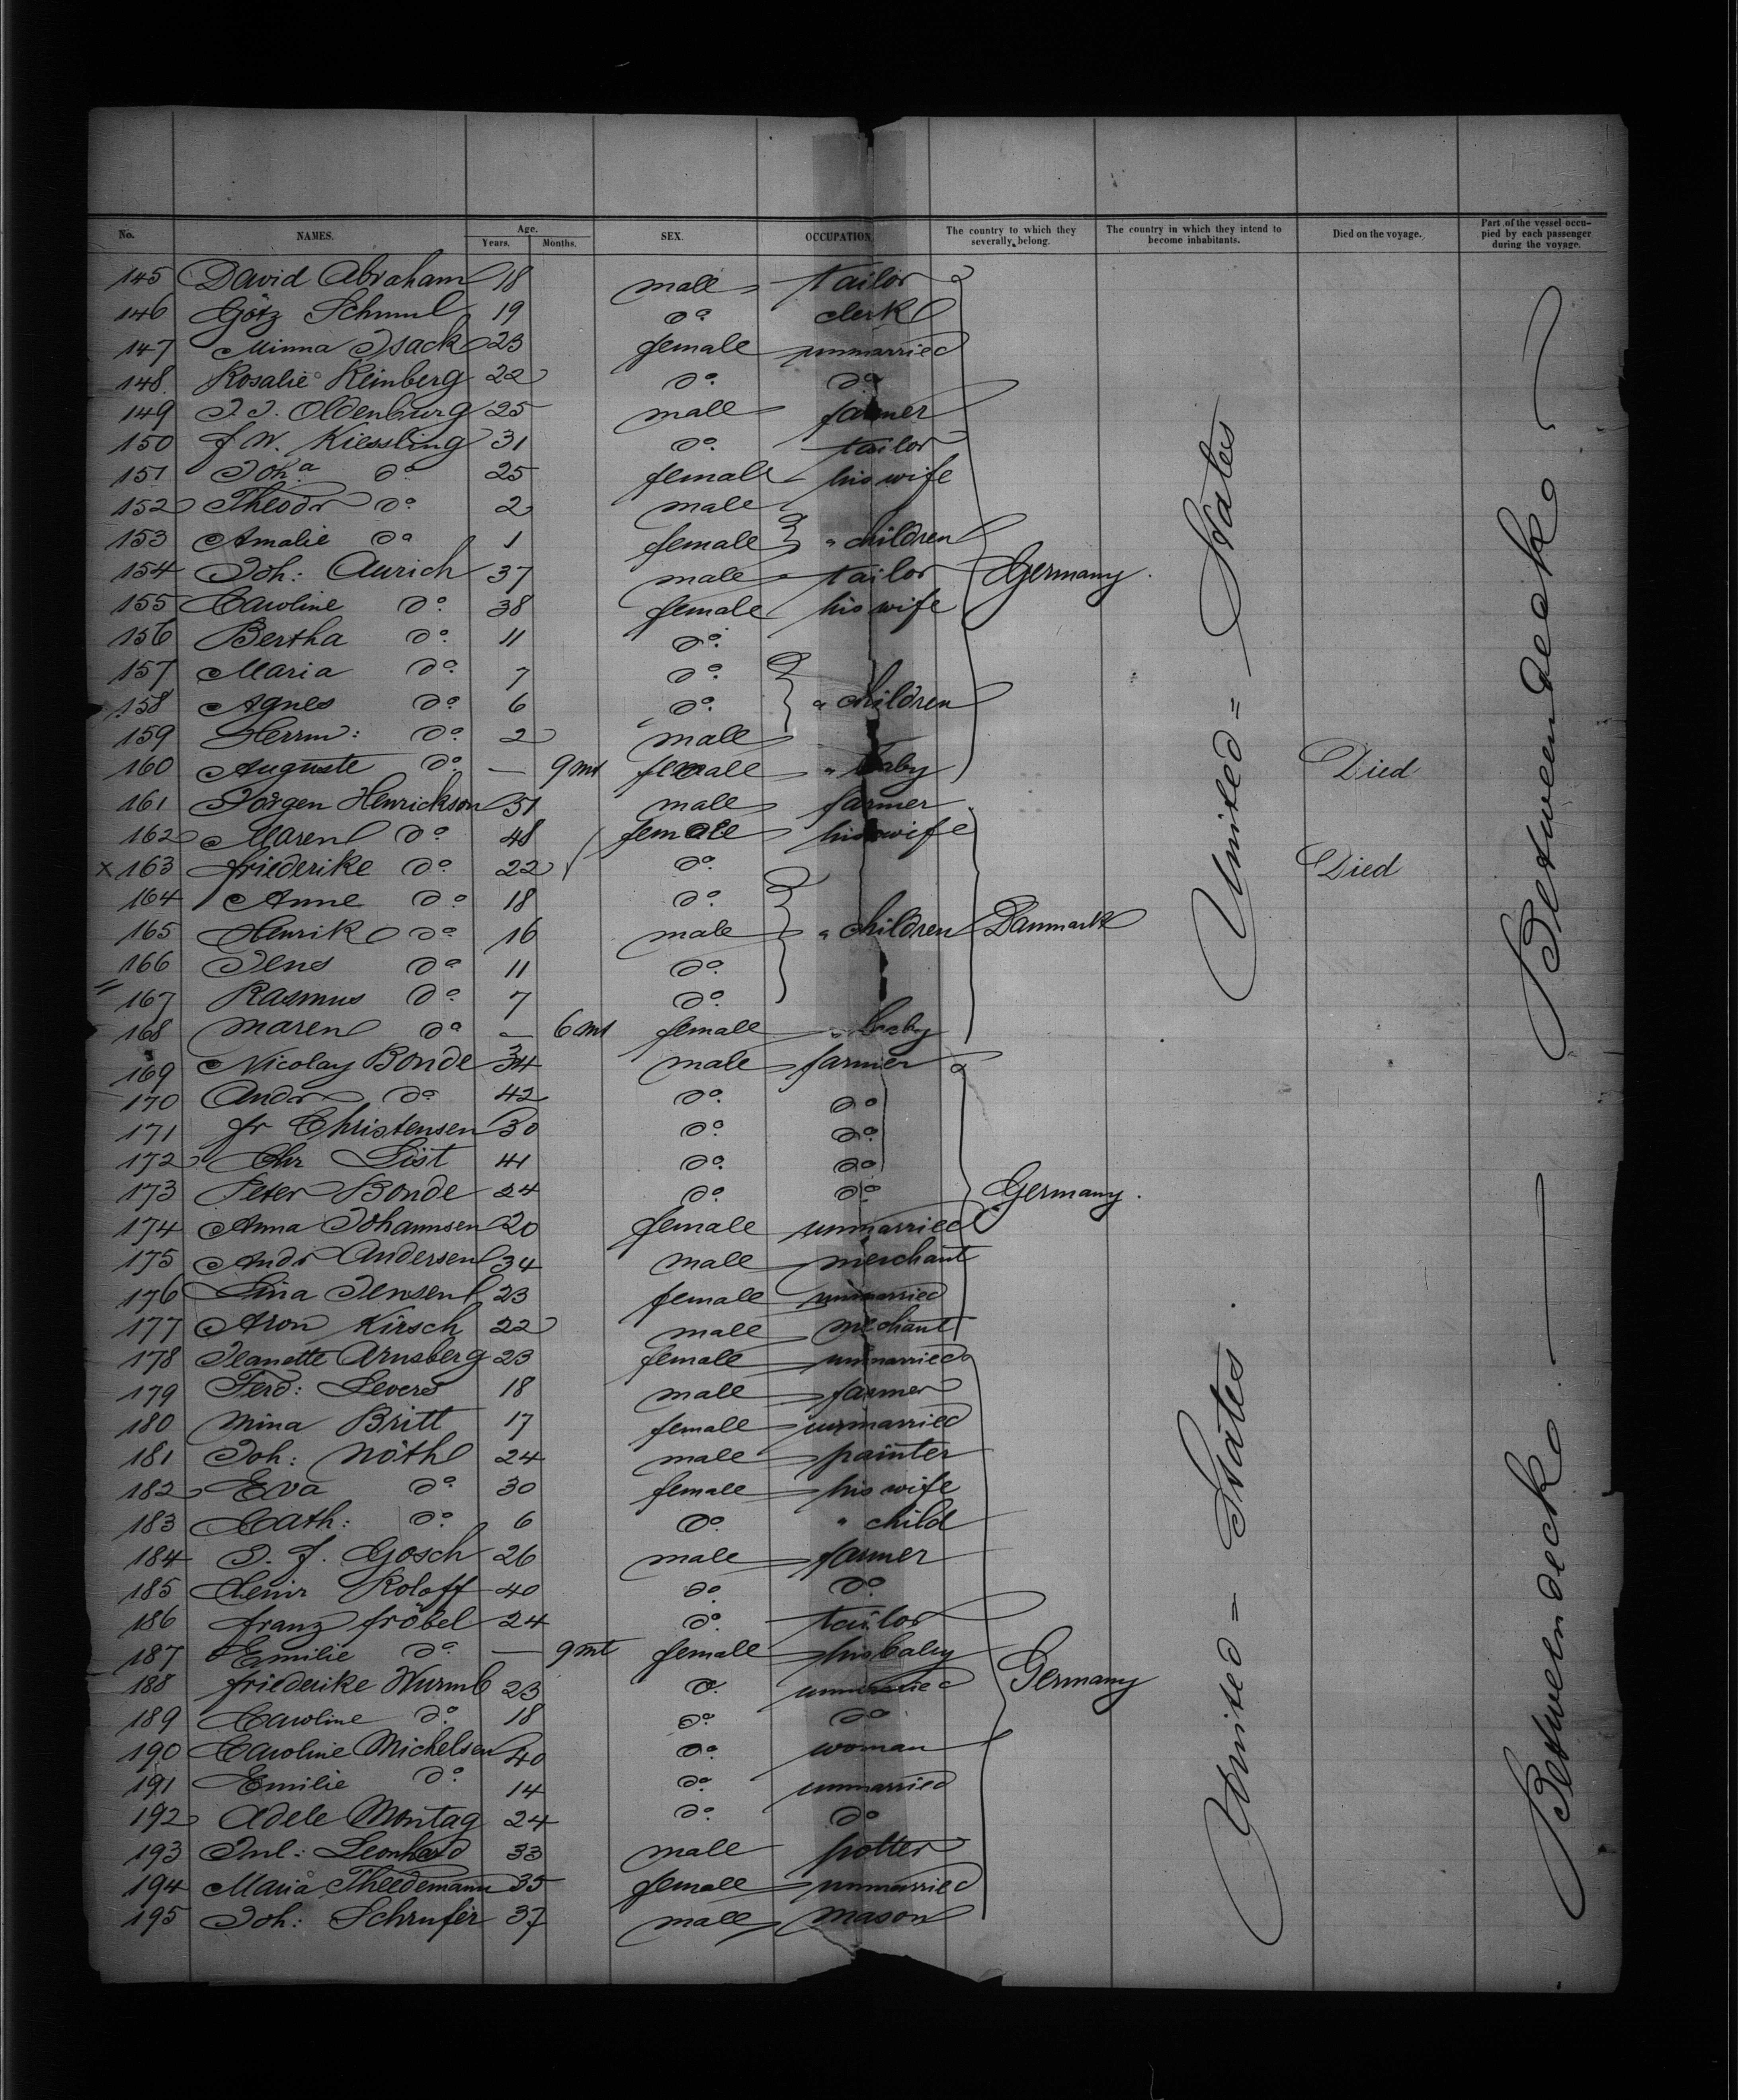 No. NAMES. Age. Years. Months. SEX. OCCUPATION The country to which they severally belong. The country in which they intend to become inhabitants. Died on the voyage. Part of the vessel occupied by each passenger during the voyage.
145 David Abraham 18 male tailor
146 Götz Schmul 19 do clerk
147 Minna Isack 23 female unmarried
148 Rosalie Reinberg 22 do. do
149 J. J. Oldenburg 25 male farmer
150 F. W. Kiessling 31 do. tailor
151 Joha. do 25 female his wife
152 Theodr do. 2 male
153 Amalie do 1 female " children
154 Joh: Aurich 37 male tailor Germany.
155 Caroline do. 38 female his wife
156 Bertha do. 11 do.
157 Maria do. 7 do.
158 Agnes do. 6 do. " children
159 Herrm: do. 2 male
160 Auguste do. — 9 mt female " baby Died
161 Jörgen Henrickson 51 male farmer
162 Maren do. 48 female his wife
x 163 Friederike do. 22 do. Died
164 Anne do. 18 do.
165 Henrik do. 16 male " children Danmark
166 Jens do 11 do.
167 Rasmus do. 7 do.
168 Maren do — 6 mt female " baby
169 Nicolay Bonde 34 male farmer
170 Andr do. 42 do. do
171 Fr Christensen 30 do. do.
172 Chr List 41 do. do
173 Peter Bonde 24 do. do Germany.
174 Anna Johannsen 20 female unmarried
175 Andr Andersen 34 male merchant
176 Lina Jensen 23 female unmarried
177 Aron Kirsch 22 male mechant
178 Jeanette Arnsberg 23 female unmarried
179 Ferd: Severs 18 male farmer
180 Mina Britt 17 female unmarried
181 Joh: Nöthl 24 male painter
182 Eva do 30 female his wife
183 Cath: do. 6 do. " child
184 J. F. Gosch 26 male farmer
185 Heinr Roloff 40 do. do.
186 Franz Fröbel 24 do. tailor
187 Emilie do. — 9 mt female his baby
188 Friederike Wurmb 23 do. unmarried Germany
189 Caroline do. 18 do. do
190 Caroline Michelsen 40 do. woman
191 Emilie do. 14 do. unmarried
192 Adele Montag 24 do. do
193 Jul: Leonhard 33 male potter
194 Maria Theedemann 35 female unmarried
195 Joh: Schrufer 37 male mason
United = States
United = States
Betweendecks
Betweendecks